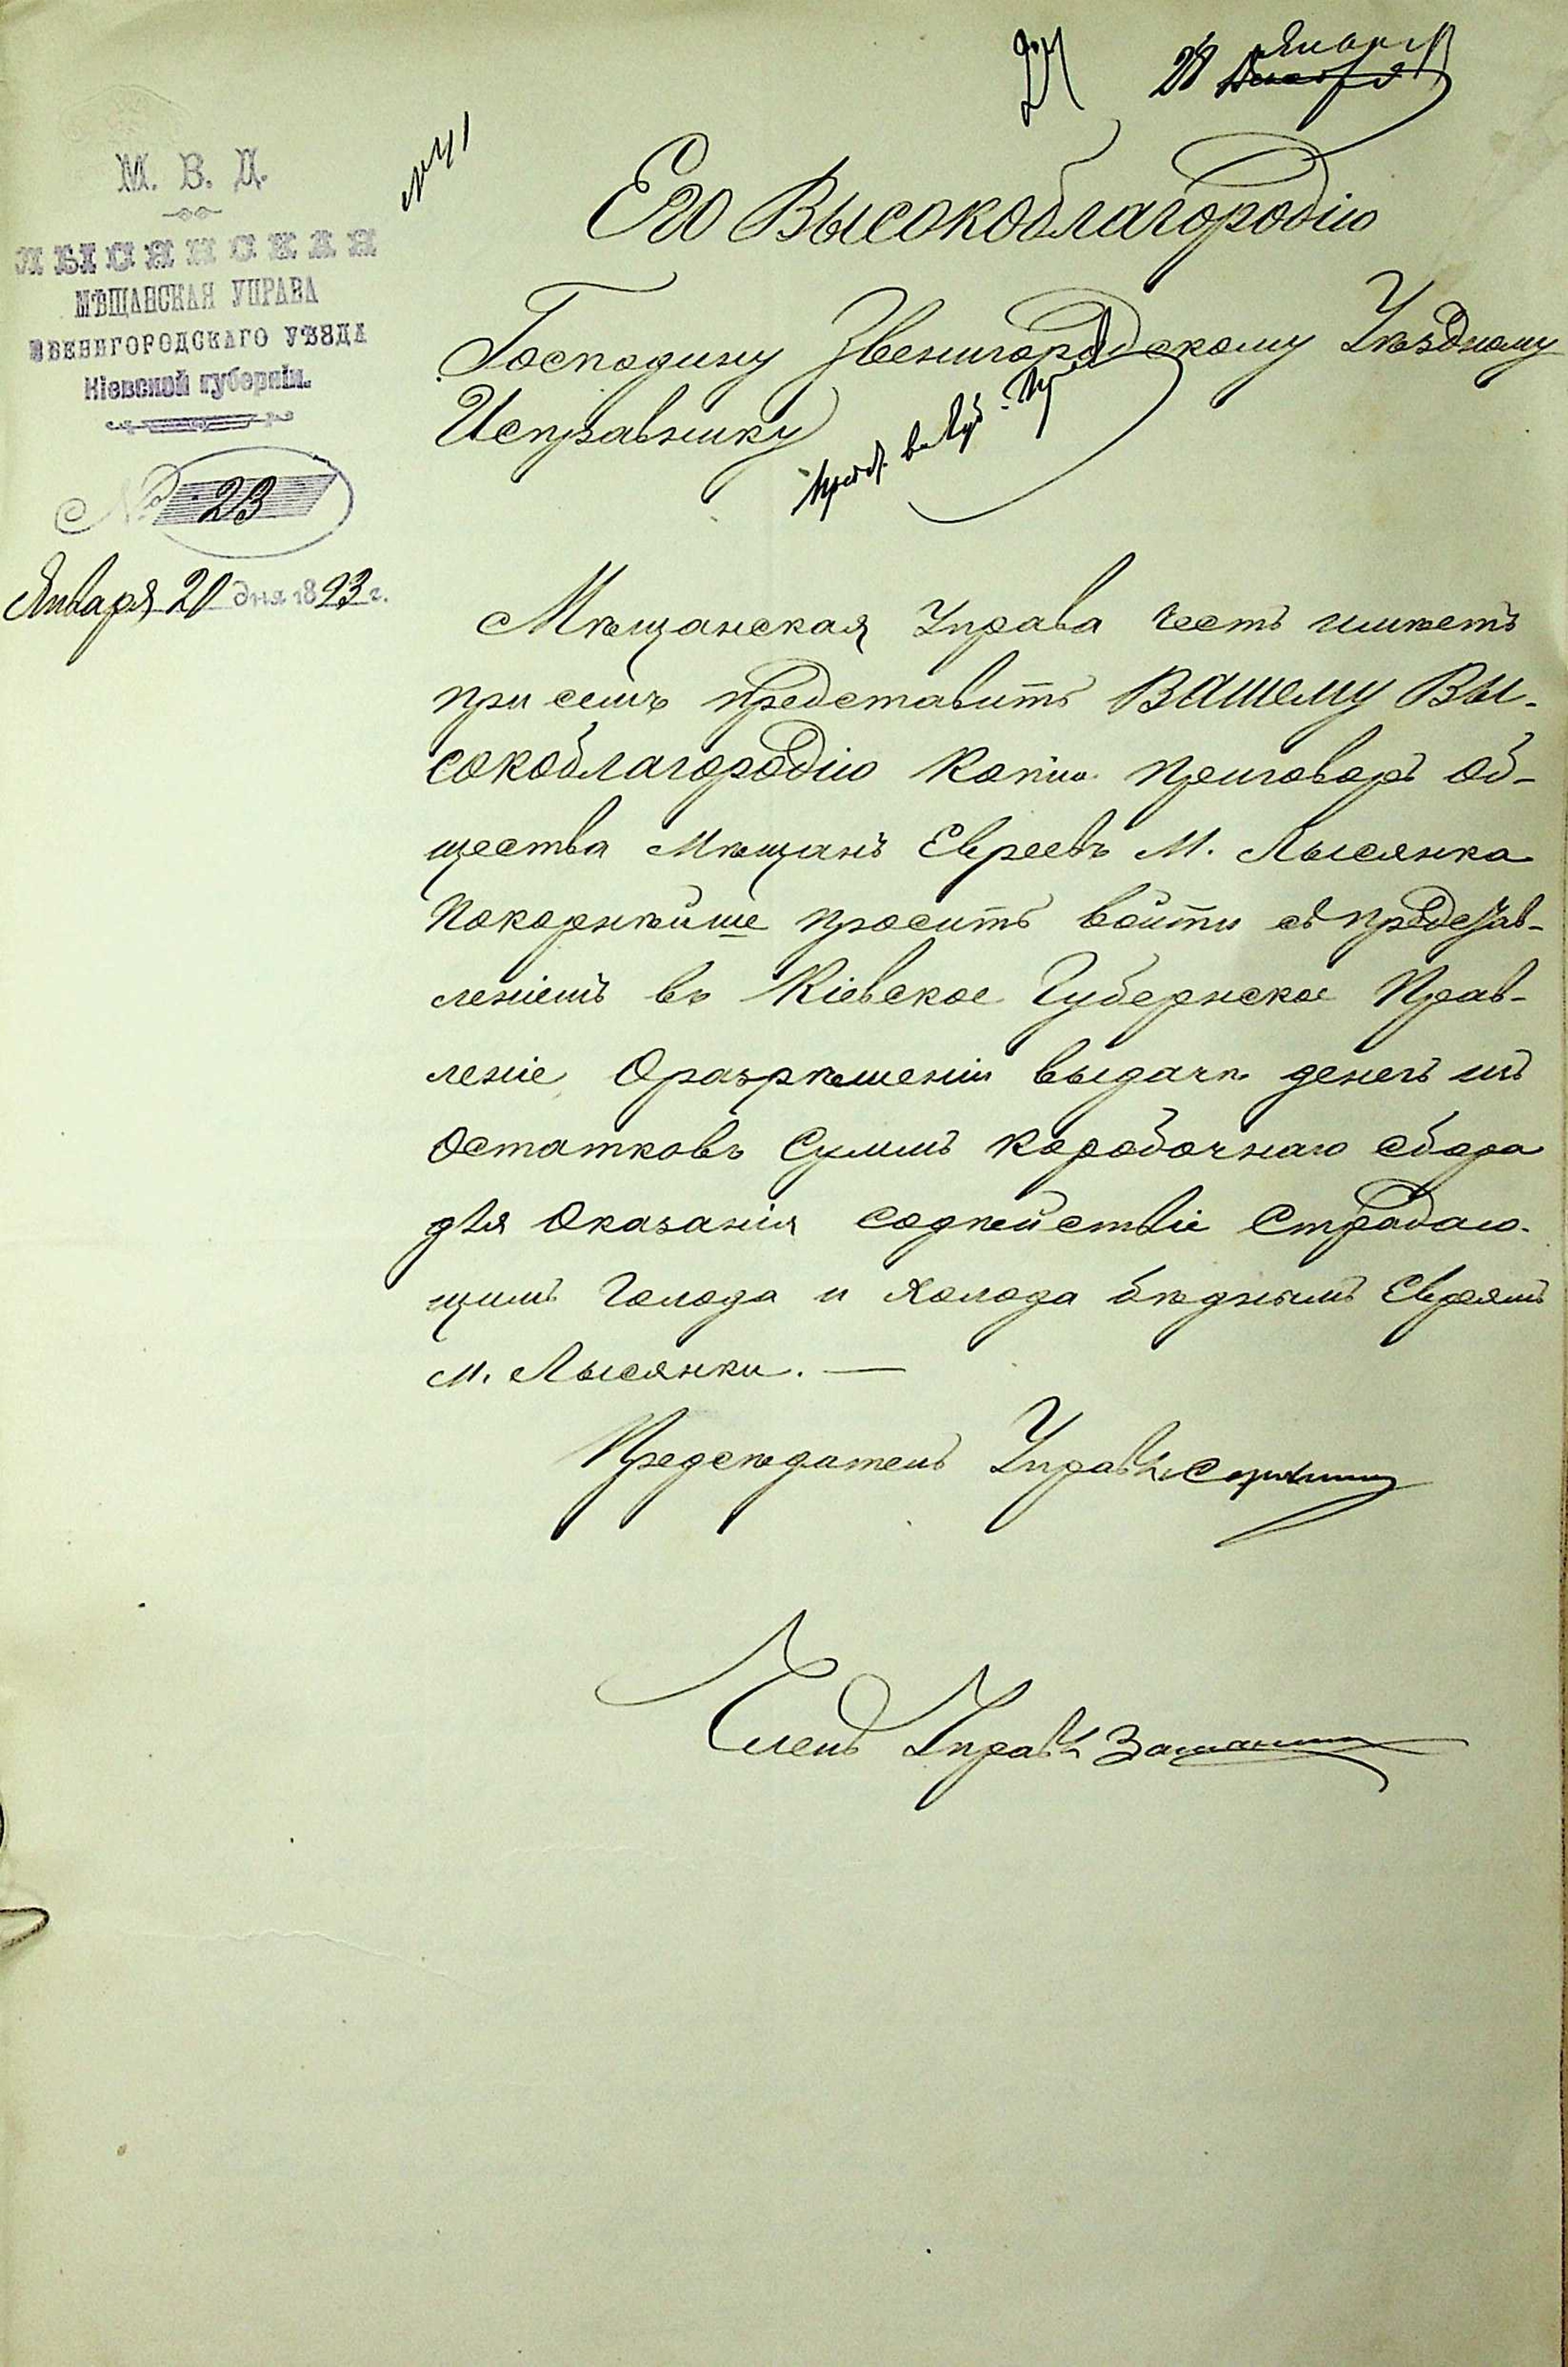 28 Января
№ 41
М. В. Д.
ЛЫСЯНСКАЯ
МѢЩАНСКАЯ УПРАВА
ЗВЕНИГОРОДСКАГО УѢЗДА
Кіевской губерніи.
№ 23
Января 20 дня 1893 г.
Его Высокоблагородію
Господину Звенигородскому Уѣздному
Исправнику
Мѣщанская Управа честь имѣетъ
при семъ представить Вашему Вы-
сокоблагородію копію приговоръ об-
щества Мѣщанъ Евреевъ М. Лысянка
покорнѣйше просить войти съ представ-
леніемъ въ Кіевское Губернское Прав-
леніе Оразрѣшеніи выдачи денегъ изъ
Остатковъ Суммъ коробочнаго сбора
для Оказанія содѣйствіе Страдаю-
щимъ Голода и Холода бѣднымъ Евреямъ
м. Лысянки. —
Предсѣдатель Управы
Членъ Управы